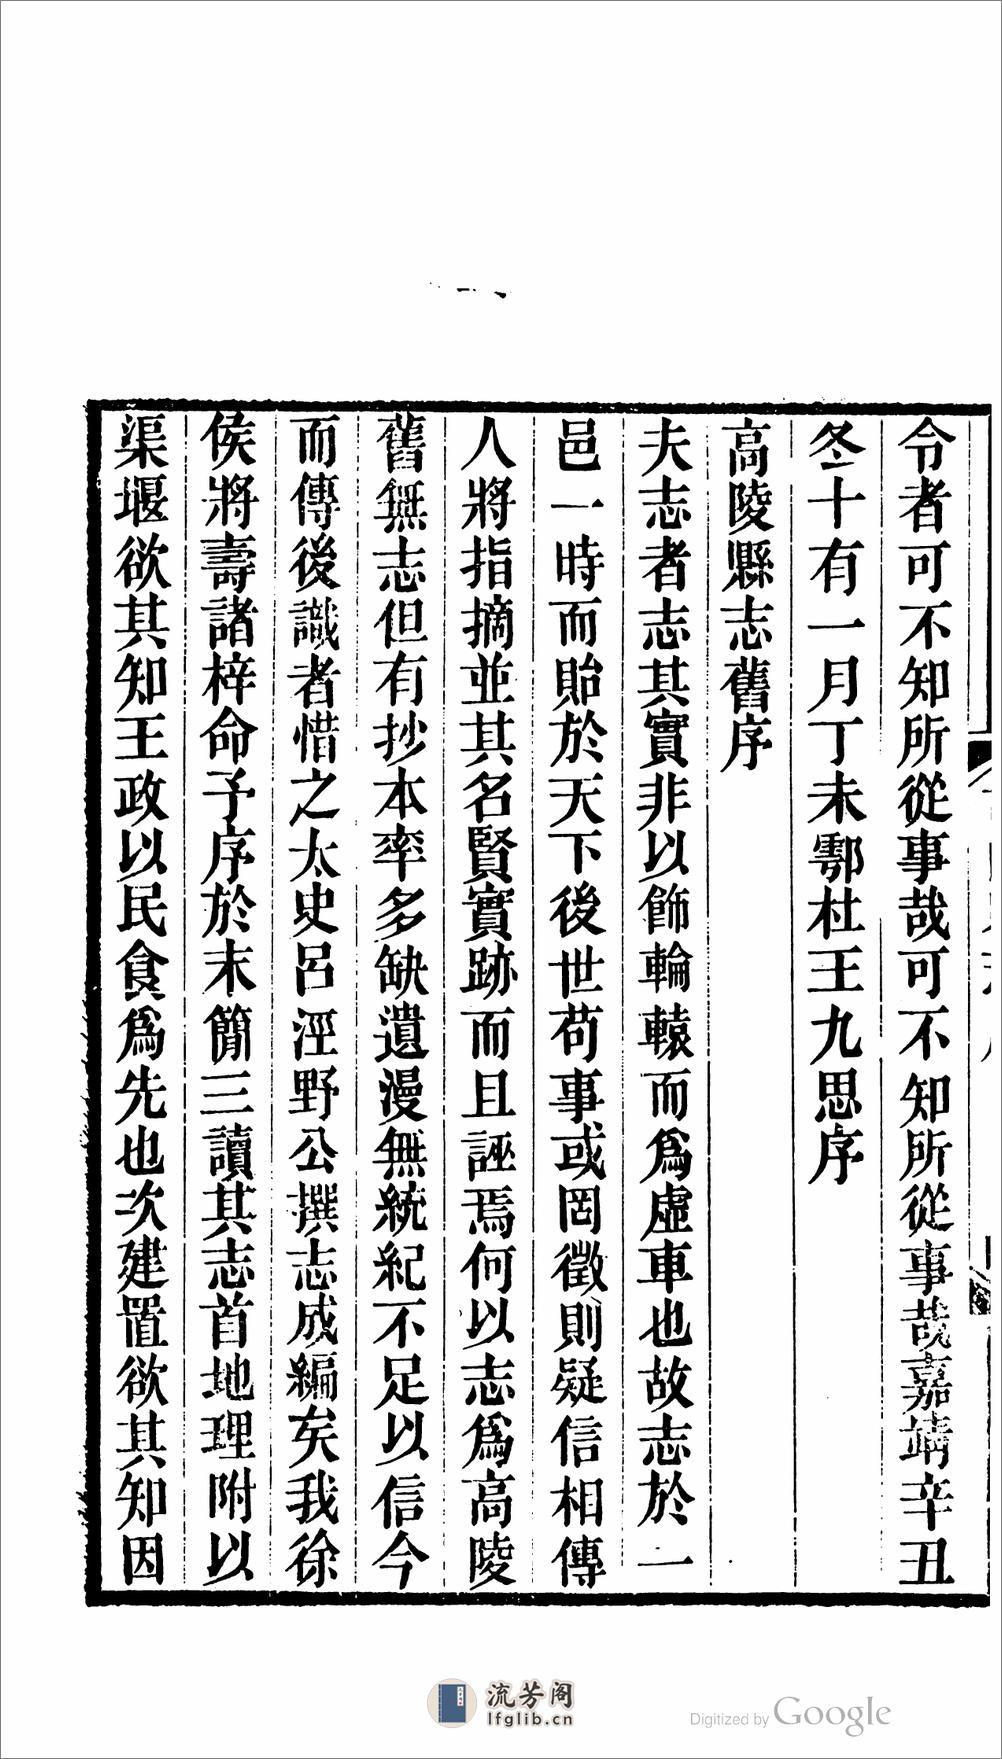 令者可不知所從事哉可不知所從事哉嘉靖辛丑
冬十有一月丁未鄠杜王九思序
高陵縣志舊序
夫志者志其實非以飾輪轅而爲虛車也故志於一
邑一時而貽於天下後世苟事或罔徵則疑信相傳
人將指摘並其名賢實跡而且誣焉何以志爲高陵
舊無志但有抄本率多缺遺漫無統紀不足以信今
而傳後識者惜之太史呂涇野公撰志成編矣我徐
侯將壽諸梓命予序於末簡三讀其志首地理附以
渠堰欲其知王政以民食爲先也次建置欲其知因
流芳阁
lfglib.cn
Digitized by Google